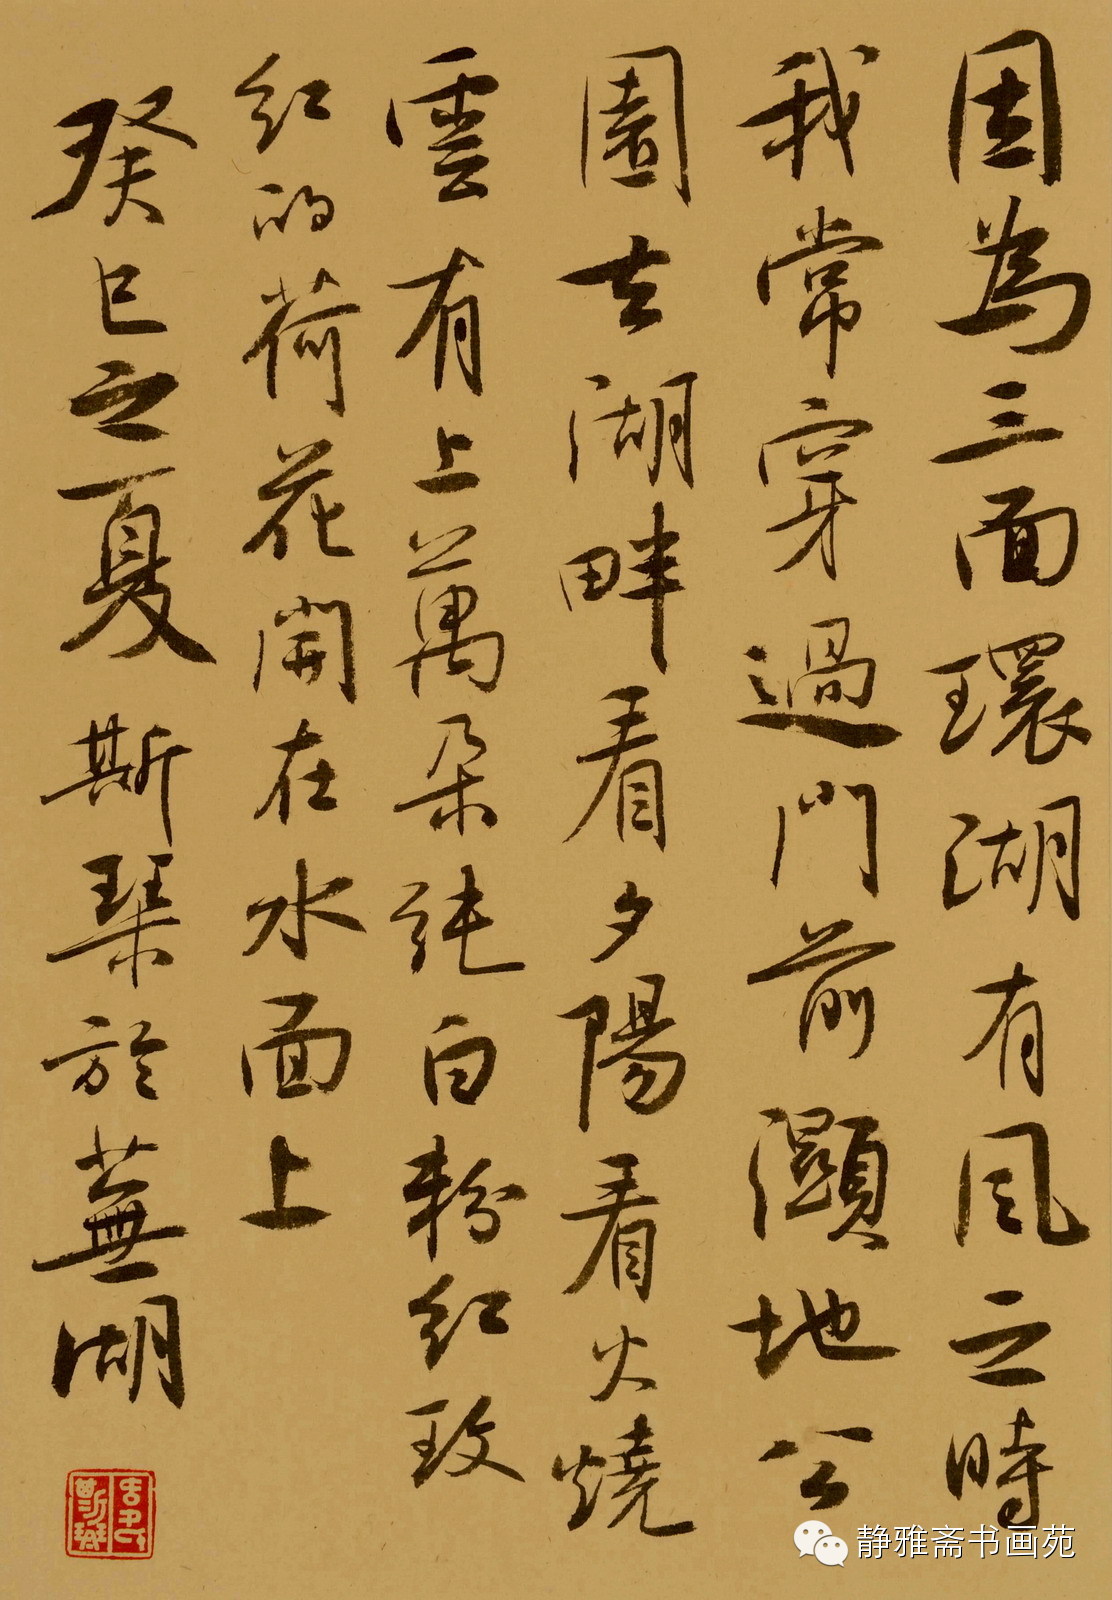 因為三面環湖有風之時
我常穿過門前灝地公
園去湖畔看夕陽看火燒
雲有上萬朵純白粉紅玫
紅的荷花開在水面上
癸巳之夏斯琹於蕪湖
静雅斋书画苑